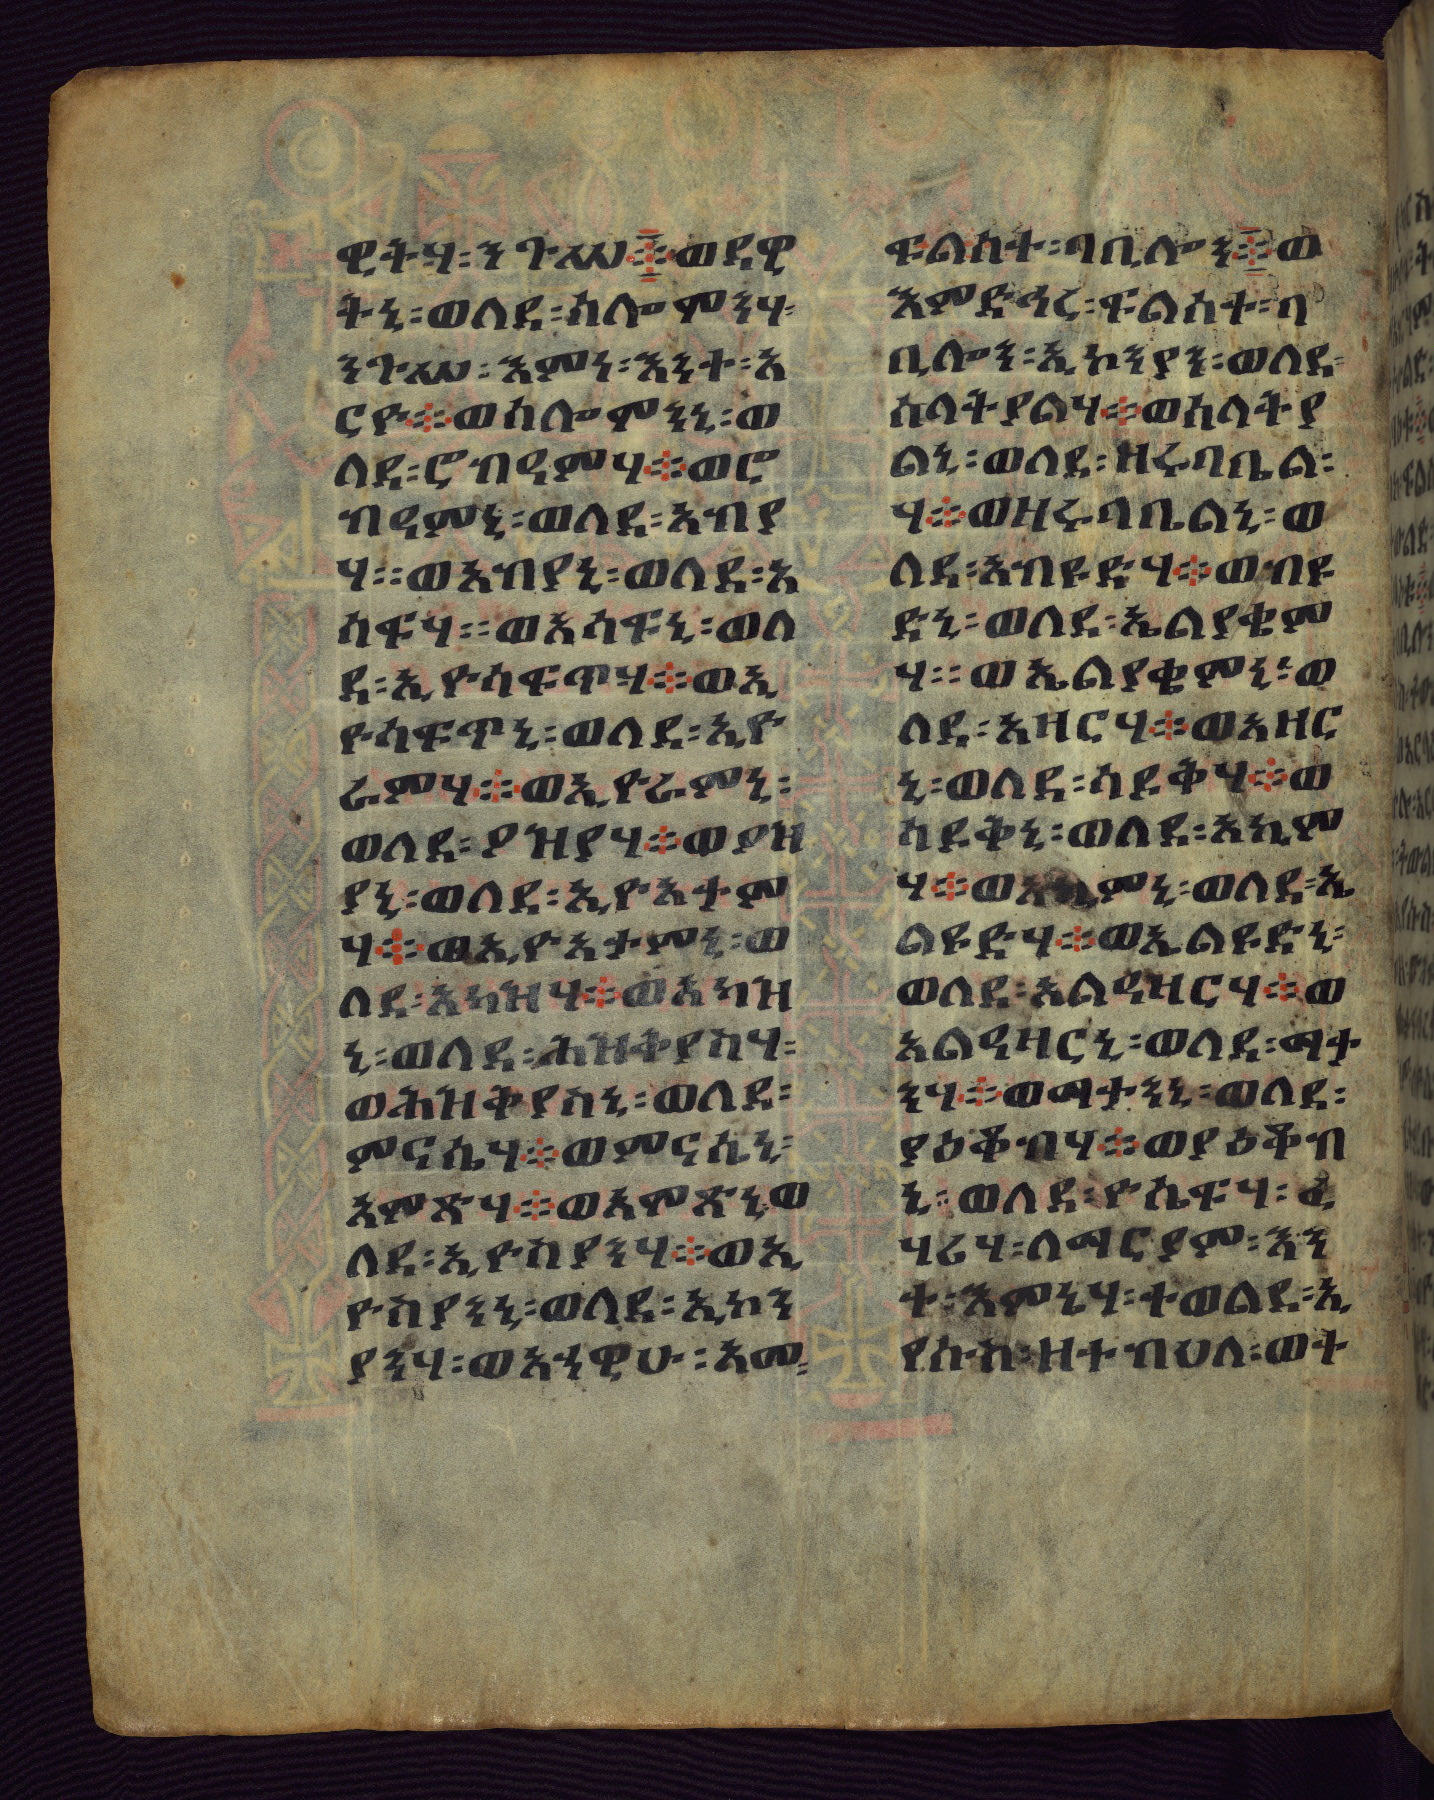 ዊትሃ፡ንጉሠ፨ወዳዊ
ትኒ፡ወለደ፡ሰሎምንሃ፡
ንጉሠ፡እምነ፡እንተ፡ኦ
ርዮ፨ወሰሎሞንኒ፡ወ
ለደ፡ሮብዓምሃ፨ወሮ
ብዓምኒ፡ወለደ፡አብያ
ሃ፡፡ወአብያኒ፡ወለደ፡አ
ሳፍሃ፡፡ወአሳፍኒ፡ወለ
ደ፡ኢዮሳፍጥሃ፨ወኢ
ዮሳፍጥኒ፡ወለደ፡ኢዮ
ራምሃ፨ወኢዮራምኒ፡
ወለደ፡ዖዝያሃ፨ወዖዝ
ያኒ፡ወለደ፡ኢዮአታም
ሃ፨ወኢዮአታምኒ፡ወ
ለደ፡አካዝሃ፨ወአካዝ
ኒ፡ወለደ፡ሕዝቅያስሃ፡
ወሕዝቅያስኒ፡ወለደ፡
ምናሴሃ፨ወምናሴኒ፡
አሞጽሃ፨ወአሞጽኒ፡ወ
ለደ፡ኢዮስያንሃ፨ወኢ
ዮስያንኒ፡ወለደ፡ኢኮን
ያንሃ፡ወአኃዊሁ፡አመ፡
ፍልሰተ፡ባቢሎን፨ወ
እምድኅረ፡ፍልሰተ፡ባ
ቢሎን፡ኢኮንያን፡ወለደ፡
ሰላትያልሃ፨ወሰላትያ
ልኒ፡ወለደ፡ዘሩባቤል፡
ሃ፨ወዘሩባቤልኒ፡ወ
ለደ፡አብዩድሃ፨ወብዩ
ድኒ፡ወለደ፡ኤልያቄም
ሃ፡፡ወኤልያቄምኒ፡ወ
ለደ፡አዛርሃ፨ወአዛር
ኒ፡ወለደ፡ሳዶቅሃ፨ወ
ሳዶቅኒ፡ወለደ፡አኪም
ሃ፨ወአኪምኒ፡ወለደ፡ኤ
ልዩድሃ፨ወኤልዩድኒ፡
ወለደ፡አልዓዛርሃ፨ወ
አልዓዛርኒ፡ወለደ፡ማት
ንሃ፨ወማትንኒ፡ወለደ፡
ያዕቆብሃ፨ወያዕቆብ
ኒ፡ወለደ፡ዮሴፍሃ፡ፈ
ሃሪሃ፡ለማርያም፡እን
ተ፡እምኔሃ፡ተወልደ፡ኢ
የሱስ፡ዘተብህለ፡ወት